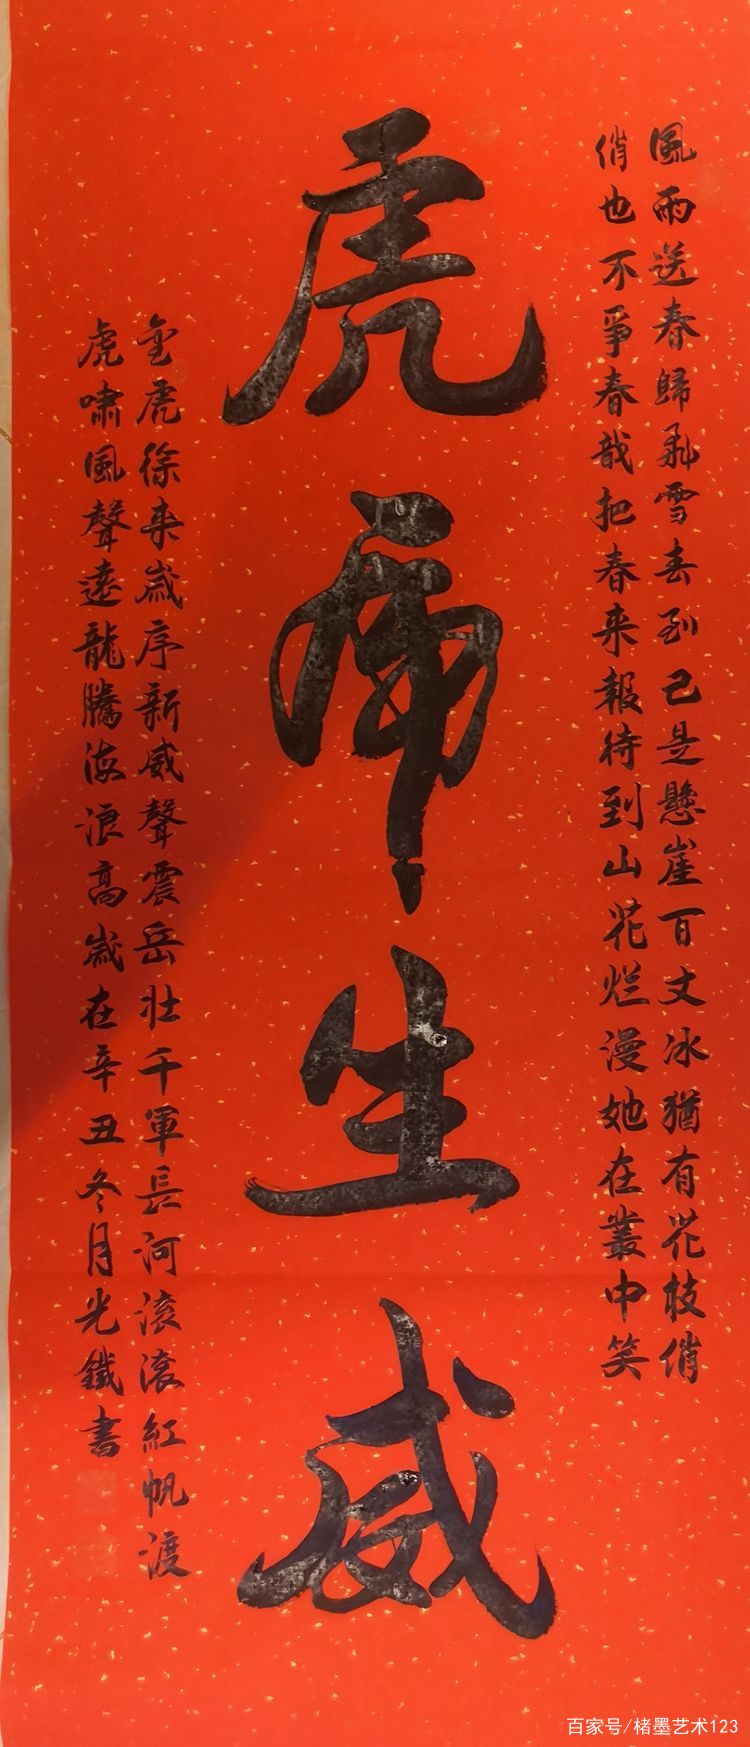 風雨送春歸飛雪春到已是懸崖百丈冰猶有花枝俏
俏也不爭春哉把春来報待到山花烂漫她在叢中笑
虎虎生威
金虎徐来歲序新威聲震岳壮千軍長河滚滚紅帆渡
虎啸風聲遠龍騰海浪高歲在辛丑冬月光鐵書
百家号/楮墨艺术123